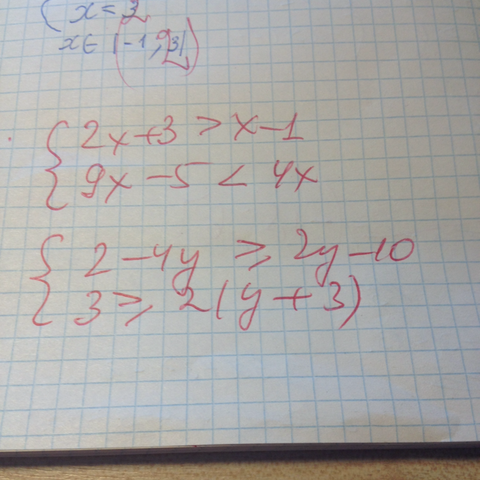 x = 2
x ∈
2x + 3 > x - 1
9x - 5 < 4x
2 - 4y ≥ 2y - 10
3 ≥ 2(y + 3)